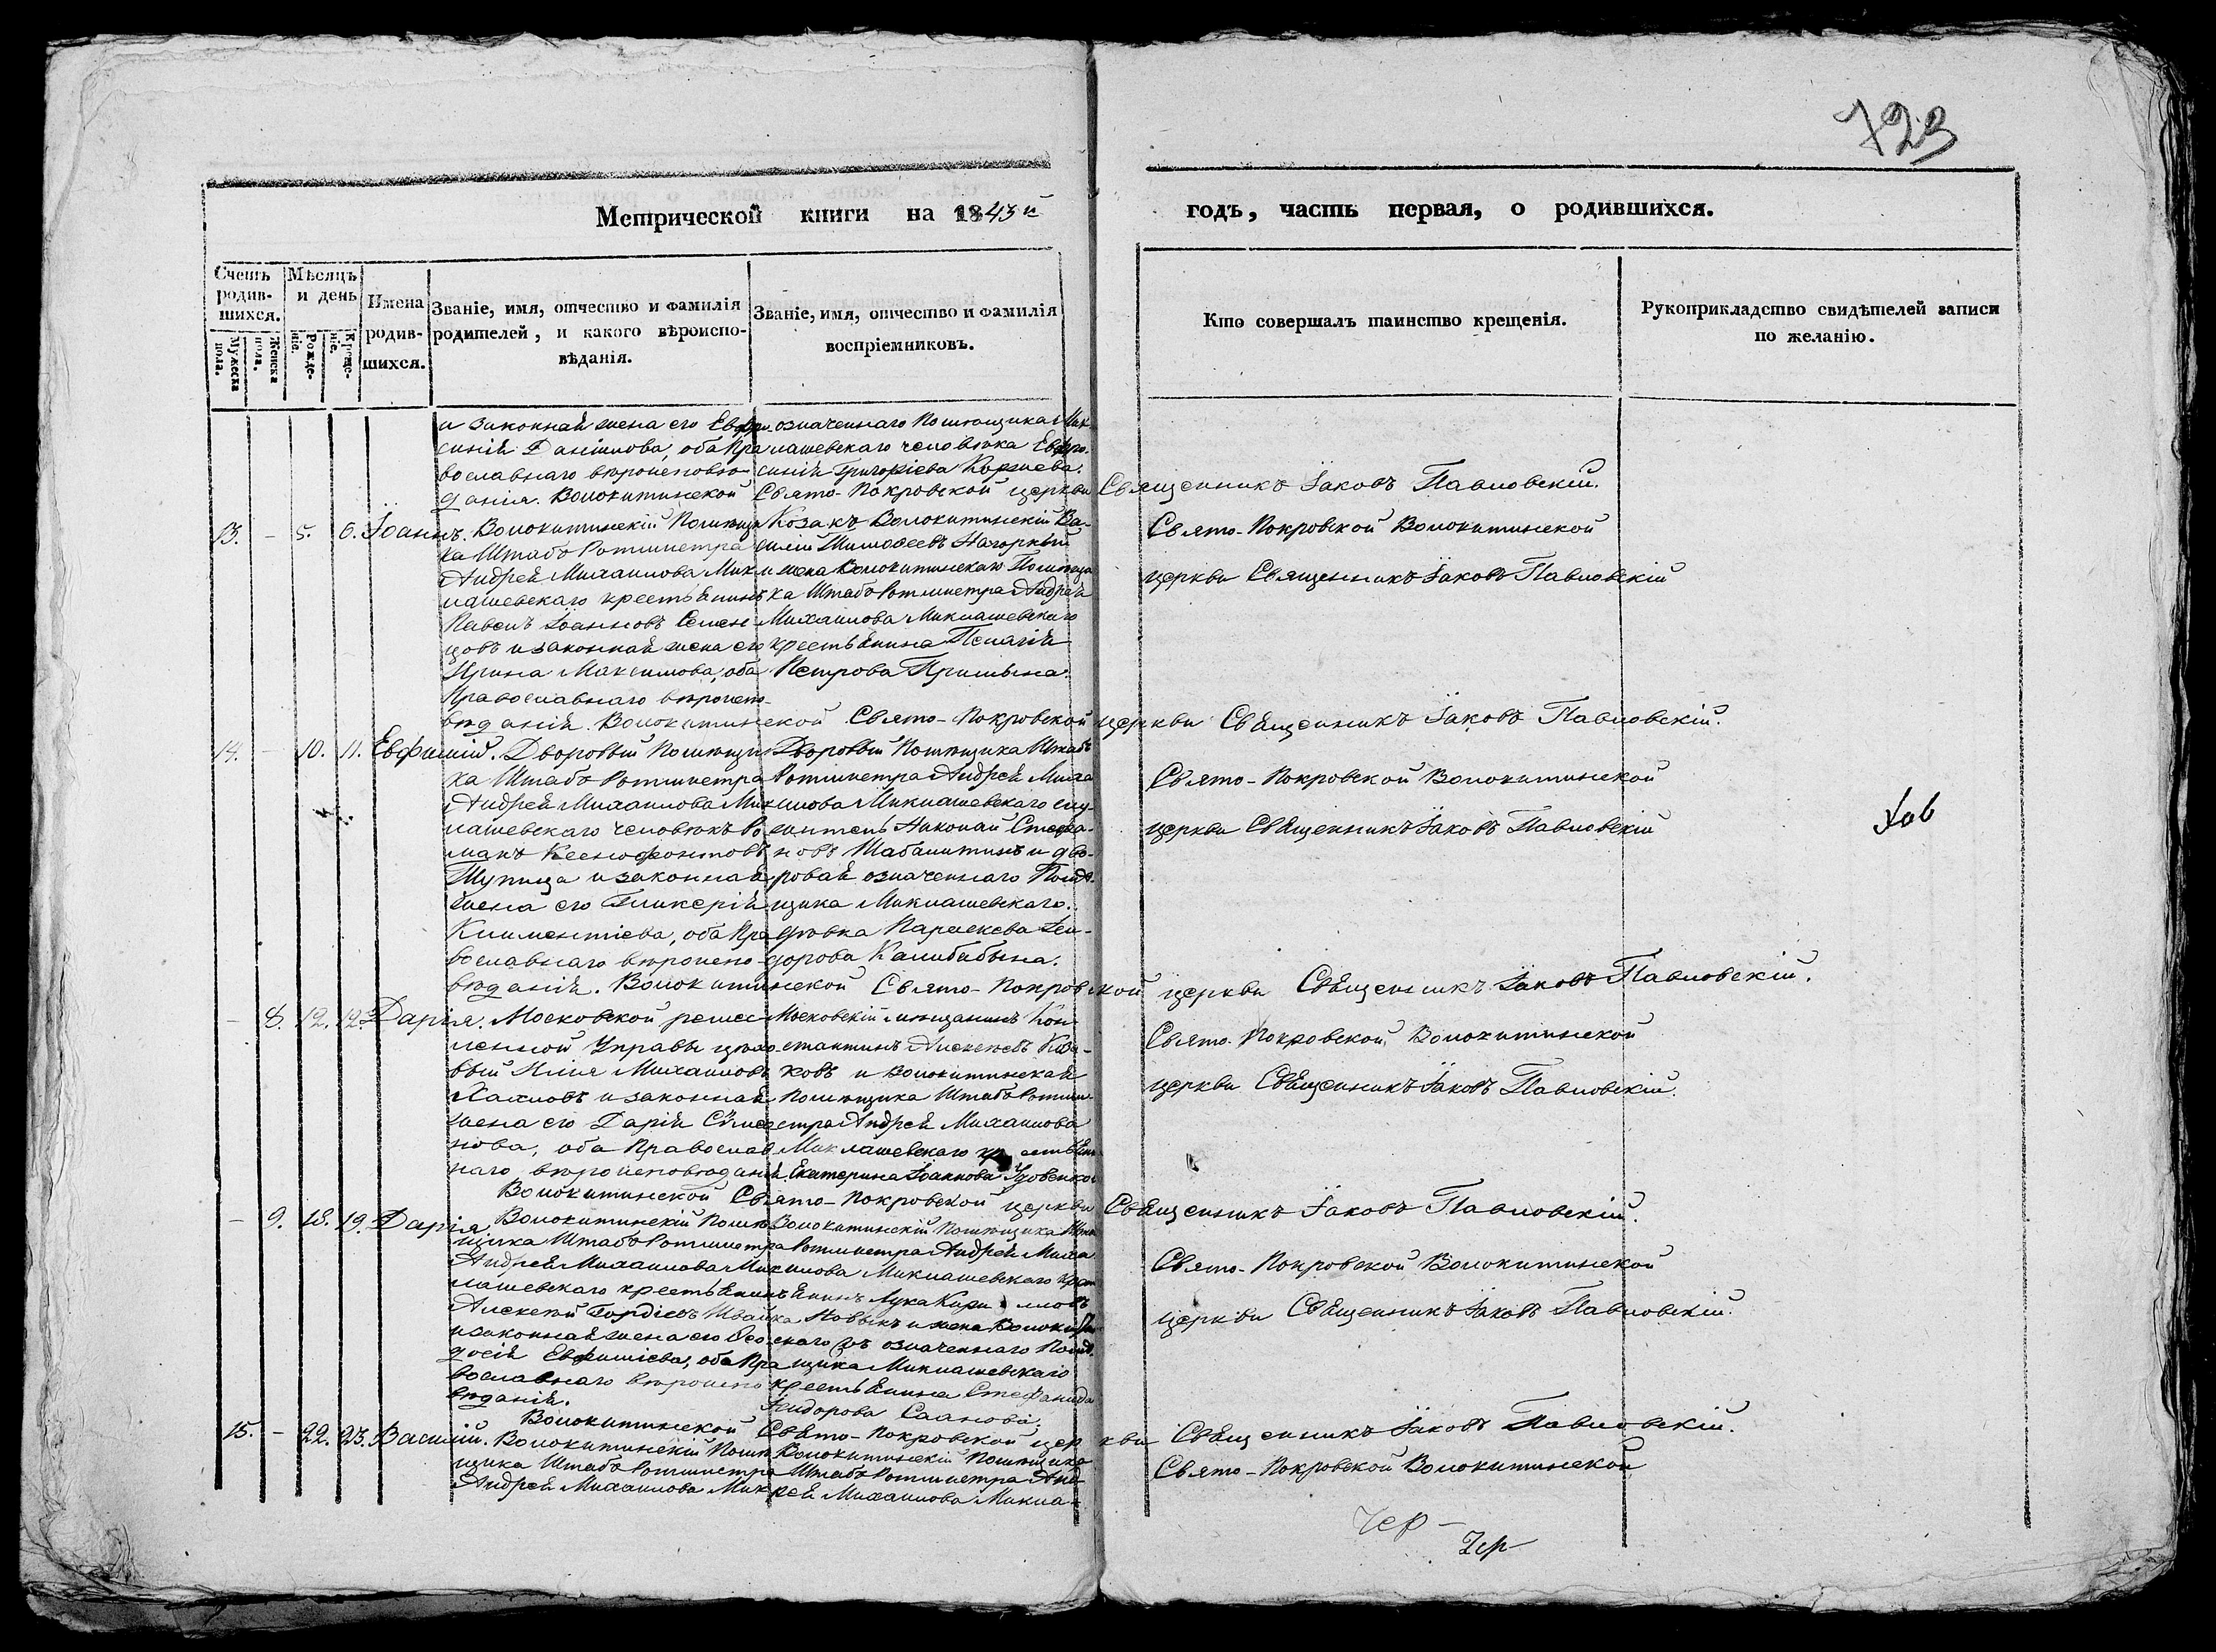 723
Метрической книги на 1843й
годъ, часть первая, о родившихся.
Счетъ родив-шихся.
Мужеска пола.
Женска пола.
Мѣсяцъ и день
Рожде-ніе.
Креще-ніе.
Имена родив-шихся.
Званіе, имя, отчество и фамилія родителей, и какого вѣроиспо-вѣданія.
Званіе, имя, отчество и фамилія воспріемниковъ.
Кто совершалъ таинство крещенія.
Рукоприкладство свидѣтелей записи по желанію.
и законная жена его Евфро-
синія Даніилова, оба Пра
вославнаго вѣроисповѣ-
данія.
означеннаго Помѣщика Мик-
лашевскаго человѣка Евфро-
синія Григоріева Коржева.
Волокитинской Свято-Покровской церкви Священникъ Іаковъ Павловскій.
13. - 5. 6. Іоаннъ.
Волокитинскій Помѣщи
ка Штабъ Ротмистра
Андрея Михаилова Мик
лашевскаго крестьянинъ
Павелъ Іоанновъ Семен
цовъ и законная жена его
Ирина Максимова, оба
Православнаго вѣроиспо-
вѣданія.
Козакъ Волокитинскій Ва-
силій Тимофеевъ Нагорный
и жена Волокитинскаго Помѣщи
ка Штабъ Ротмистра Андрея
Михаилова Миклашевскаго
крестьянина Пелагія
Петрова
Свято-Покровской Волокитинской
церкви Священникъ Іаковъ Павловскій
Волокитинской Свято-Покровской церкви Священникъ Іаковъ Павловскій.
14. - 10. 11. Евфимій.
Дворовый Помѣщи
ка Штабъ Ротмистра
Андрея Михаилова Мик
лашевскаго человѣкъ Ро
манъ Ксенофонтовъ
Шупица и законная
жена его Гликерія
Климентіева, оба Пра
вославнаго вѣроиспо-
вѣданія.
Дворовый Помѣщика Штабъ
Ротмистра Андрея Миха
илова Миклашевскаго слу-
житель Николай Стефа-
новъ Шабалитинъ и дво-
ровая означеннаго Помѣ-
щика Миклашевскаго
дѣвка Параскева Ѳео-
дорова Калибабына.
Свято-Покровской Волокитинской
церкви Священникъ Іаковъ Павловскій
Волокитинской Свято-Покровской церкви Священникъ Іаковъ Павловскій.
- 8. 12. 12. Дарія.
Московской ремес
ленной Управы цѣхо-
вый Илія Михаиловъ
Халловъ и законная
жена его Дарія Симео
нова, оба Православ
наго вѣроисповѣданія.
Московскій мѣщанинъ Кон-
стантинъ Алексѣевъ Каза-
ковъ и Волокитинская
Помѣщика Штабъ Ротми-
стра Андрея Михаилова
Миклашевскаго крестьян
Екатерина Іоаннова Удовенкова
Свято-Покровской Волокитинской
церкви Священникъ Іаковъ Павловскій.
Волокитинской Свято-Покровской церкви Священникъ Іаковъ Павловскій.
- 9. 18. 19. Дарія
Волокитинскій Помѣ
щика Штабъ Ротмистра
Андрея Михаилова Мик
лашевскаго крестьянинъ
Алексѣй Гордіевъ Швайка
и законная жена его Ѳео
досія Евфиміева, оба Пра
вославнаго вѣроиспо
вѣданія.
Волокитинскій Помѣщика Штабъ
Ротмистра Андрея Миха
илова Миклашевскаго крест
янинъ Лука Кириловъ
Новыкъ и жена Волокитин
скаго означеннаго Помѣ
щика Миклашевскаго
крестьянина Стефанида
Ѳеодорова
Свято-Покровской Волокитинской
церкви Священникъ Іаковъ Павловскій.
Волокитинской Свято-Покровской церкви Священникъ Іаковъ Павловскій.
15. - 22. 23. Василій.
Волокитинскій Помѣ
щика Штабъ Ротмистра
Андрея Михаилова Мик
Волокитинскій Помѣщика
Штабъ Ротмистра Анд
рея Михаилова Микла-
Свято-Покровской Волокитинской
Чер-